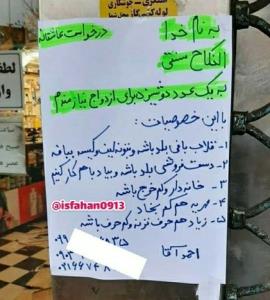 به نام خدا
درخواست عاشقانه
نکاح سنتی
به یک عدد دوشیزه برای ازدواج نیازمندم
با این خصوصیات:
۱- قلاب بافی بلد باشه و بتونه لیف و کیسه ببافه
۲- دست فروشی بلد باشه و بیاد با هم کار کنیم
۳- خانه دار و کم خرج باشه
۴- مهریه هم کم بخاد
۵- زیاد هم حرف نزنه و کم حرف باشه
احمد آقا
@isfahan0913
لطفا
وار